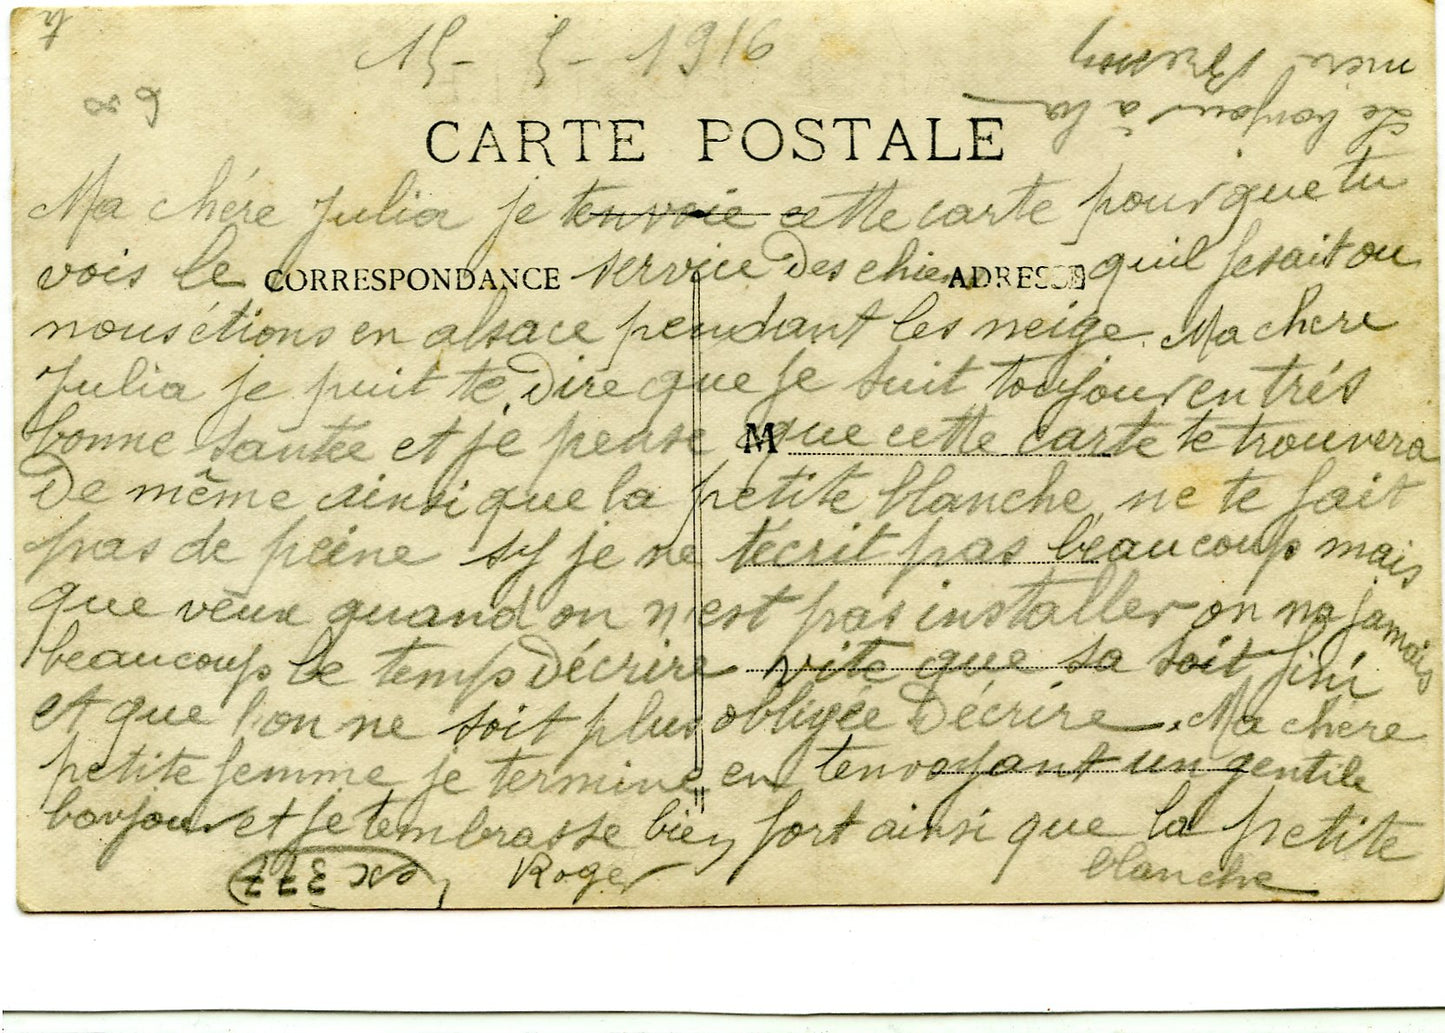 15 - 5 - 1916
Le bonjour à la
mère
CARTE POSTALE
Ma chére Julia je tenvoie cette carte pour que tu
vois le service des chiens quil fesait ou
CORRESPONDANCE ADRESSE
nous étions en alsace pendant les neige. Ma chere
Julia je puit te dire que je suit toujour en trés
bonne santée et je pense que cette carte te trouvera
M
De même ainsi que la petite blanche ne te fait
pas de peine sy je ne técrit pas beaucoup mais
que veux quand on n'est pas installer on na jamais
beaucoup le temps décrire vite que sa soit fini
et que l'on ne soit plus obligée décrire. Ma chére
petite femme je termine en tenvoyant un gentile
bonjour et je tembrasse bien fort ainsi que la petite
blanche
Roger
377